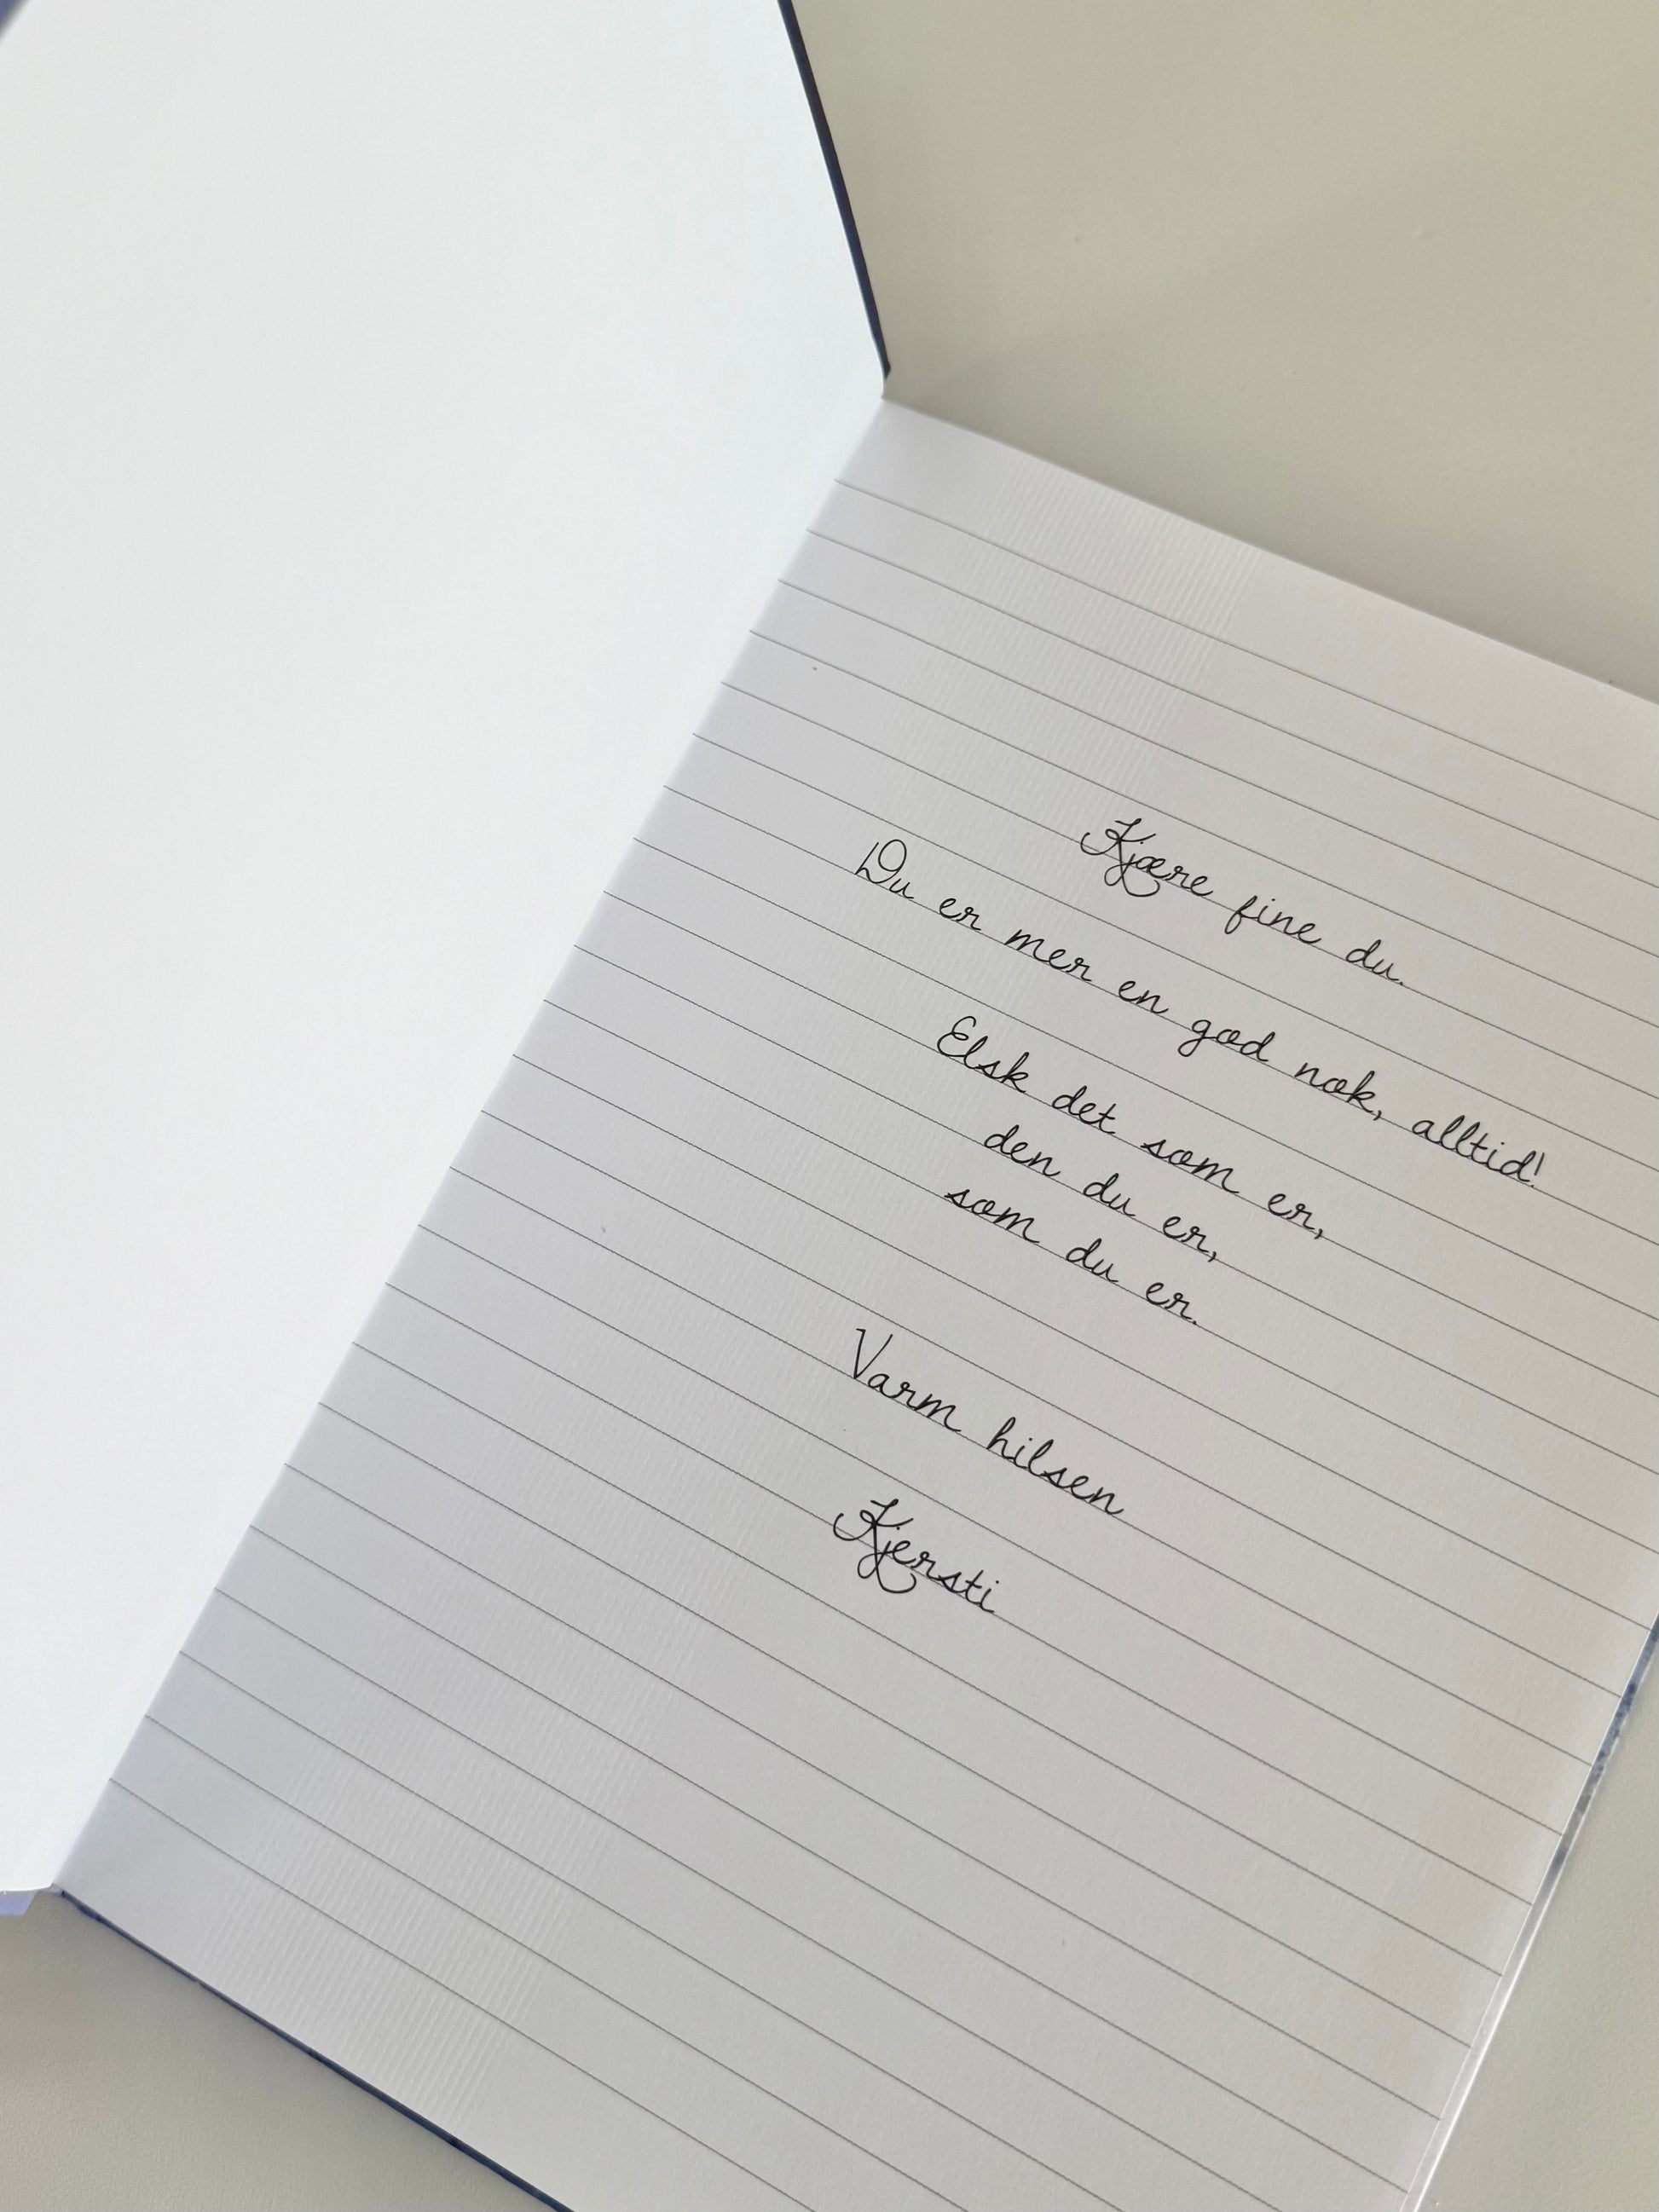 Kjære fine du.
Du er mer en god nok, alltid!
Elsk det som er,
den du er,
som du er.
Varm hilsen
Kjersti